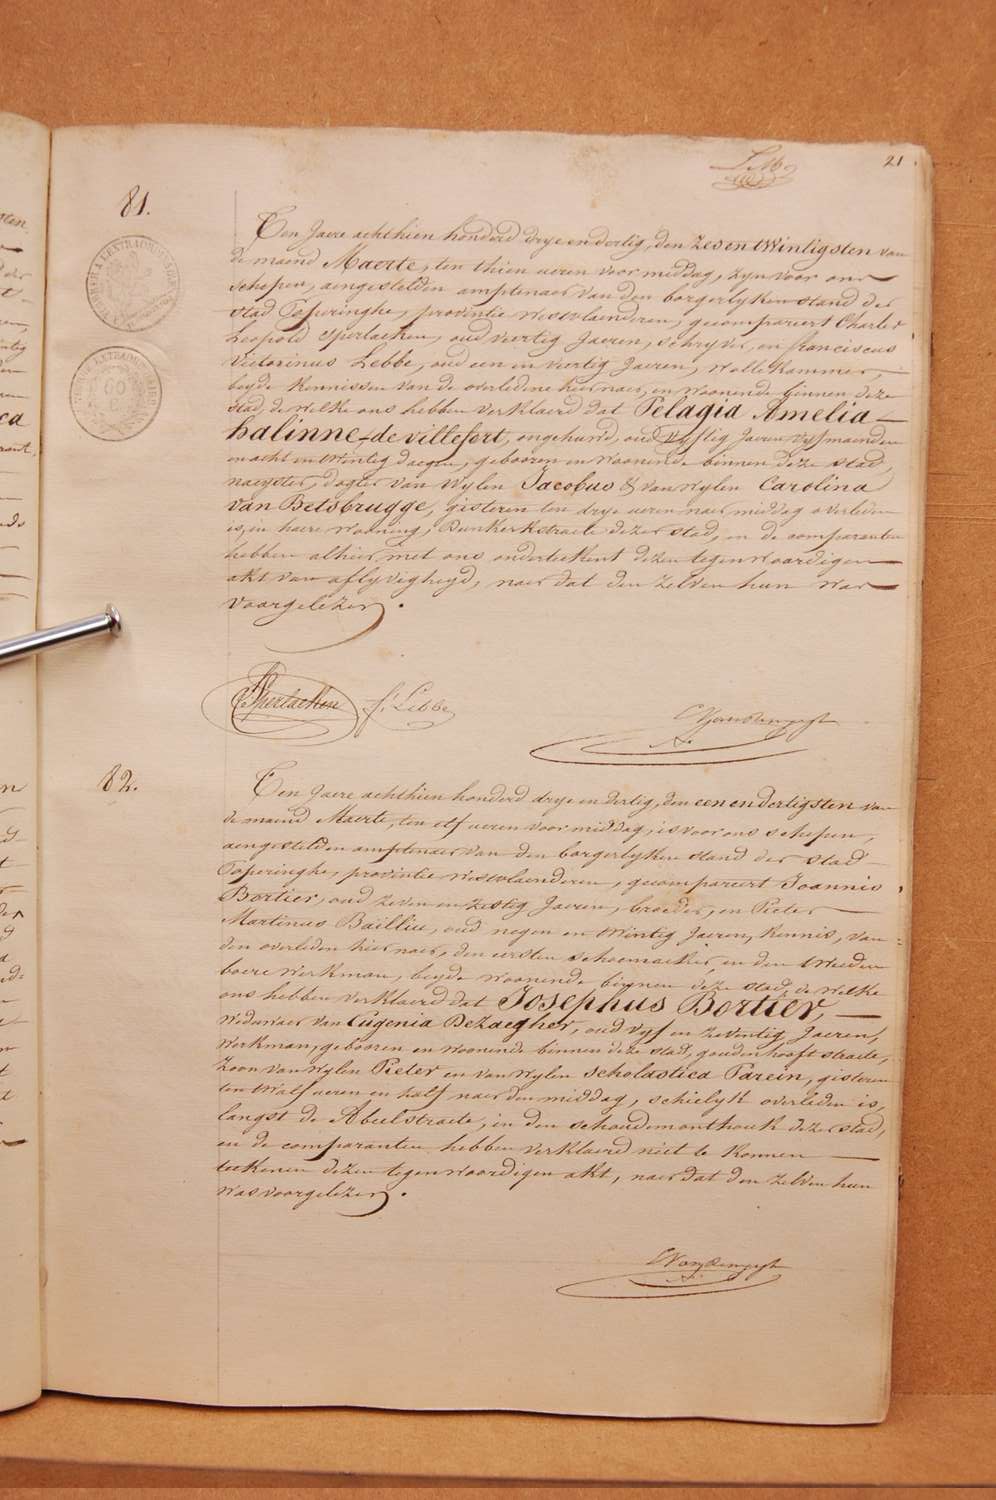 21
81.
Ten Jaere achthien honderd drye en dertig, den zes en twintigsten van
de maend Maerte, ten thien ueren voor middag, zyn voor ons
schepen, aengestelden amptenaer van den borgerlyken stand der
stad Poperinghe, provintie Westvlaenderen, gecompareert Charles
Leopold Sperlaeken, oud veertig Jaeren, schryver, en franciscus
Victorinus Lebbe, oud een en veertig Jaeren, Wollekammer,
beyde Kennissen van de overledene hiernaer, en woonende binnen deze
stad, de welke ons hebben verklaerd dat Pelagia Amelia
halinne-de villefort, ongehuwd, oud vyftig Jaeren vyf maenden
en acht en twintig daegen, gebooren en woonende binnen deze stad,
naeyster, dogter van wylen Jacobus & van wylen Carolina
van Betsbrugge, gisteren ten drye ueren naer middag overleden
is, in haere wooning, Dunkerkstraete dezer stad, en de comparanten
hebben alhier met ons onderteekent dezen tegenwoordigen
akt van aflyvigheyd, naer dat den zelven hun was
voorgelezen.
Sperlaeken f. Lebbe
82.
Ten Jaere achthien honderd drye en dertig, den een en dertigsten van
de maend Maerte, ten elf ueren voor middag, is voor ons schepen,
aengestelden amptenaer van den borgerlyken stand der stad
Poperinghe, provintie Westvlaenderen, gecompareert Joannis
Bortier, oud zeven en zestig Jaeren, broeder, en Pieter
Martinus Baëlliu, oud negen en twintig Jaeren, Kennis, van
den overleden hier naer, den eersten schoemaeker, en den tweeden
boere werkman, beyde woonende binnen deze stad, de welke
ons hebben verklaerd dat Josephus Bortier,
Weduwaer van Eugenia Dezaegher, oud vyf en zeventig Jaeren,
Werkman, gebooren en woonende binnen deze stad, goudenhooft straete,
zoon van wylen Pieter en van wylen scholastica Parein, gisteren
ten twalf ueren en half naer den middag, schielyk overleden is,
langst de Abeelstraete, in den schoudemonthoek dezer stad,
en de comparanten hebben verklaerd niet te konnen
teekenen dezen tegenwoordigen akt, naer dat den zelven hun
was voorgelezen.